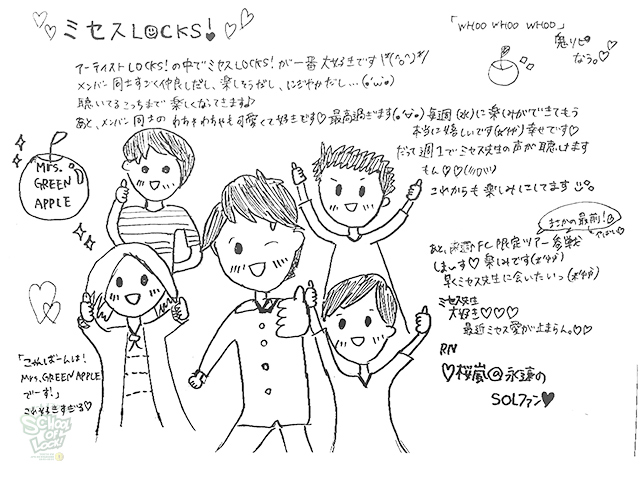 ミセスLOCKS!
アーティストLOCKS!の中でミセスLOCKS!が一番大好きです\(*^o^)*/
メンバー同士すごく仲良しだし、楽しそうだし、にぎやかだし…(о'ω'о)
聴いてるこっちまで楽しくなってきます♪
あと、メンバー同士のわちゃわちゃも可愛くて好きです♡最高過ぎます(о'ω'о)
「WHOO WHOO WHOO」
鬼リピなう。♡
毎週(水)に楽しみができてもう
本当に嬉しいです 幸せです♡
だって週1でミセス先生の声が聴けます
もん♡♡
これからも楽しみにしてます
まさかの最前!
やばい
あと、 FC限定ツアー参戦
しまぃす♡ 楽しみです
早くミセス先生に会いたいっ
ミセス先生
大好き♡♡♡
最近ミセス愛が止まらん。♡♡
RN
♡桜嵐@永遠の
SOLファン♥
Mrs.
GREEN
APPLE
「こんばーんは!
Mrs. GREEN APPLE
でーす!」
これ好きすぎる♡
SCHOOL
OF
LOCK!